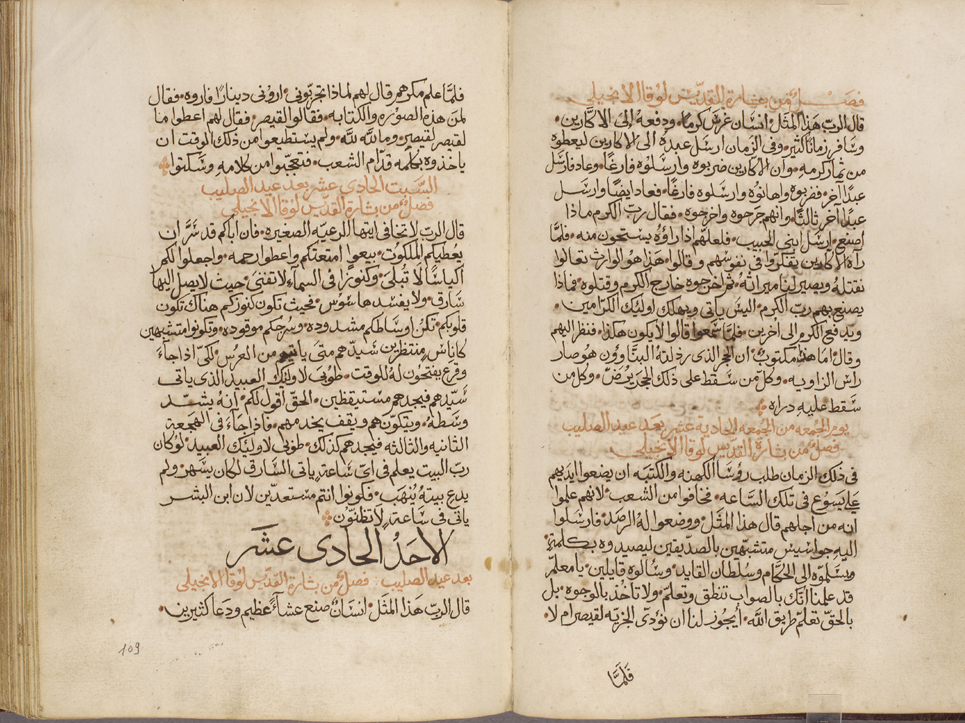 فصل من بشارة القديس لوقا الانجيلي
قال الرب هذا المثل انسان غرس كرما ودفعه الى الاكارين
وسافر زمانا كثير وفي الزمان ارسل عبده الى الاكارين ليعطوه
من ثمار كرمه وان الاكارين ضربوه وارسلوه فارغا وعاد فارسل
عبدا اخر فضربوه واهانوه وارسلوه فارغا فعاد ايضا وارسل
عبدا اخر ثالثا وانهم جرحوه واخرجوه فقال رب الكرم ماذا
اصنع ارسل ابني الحبيب فلعلهم اذا راوه يستحون منه فلما
راه الاكارين تفكروا في نفوسهم وقالوا هذا هو الوارث تعالوا
نقتله ويصير لنا ميراثه ثم اخرجوه خارج الكرم وقتلوه فماذا
يصنع بهم رب الكرم اليس ياتي ويهلك اوليك الكرامين
ويدفع الكرم الى اخرين فلما سمعوا قالوا لا يكون هكذا فنظر اليهم
وقال اما هذا مكتوب ان الحجر الذي رذلته البناوون هو صار
راس الزاويه وكل من سقط على ذلك الحجر يترضض وكل من
سقط عليه دراه
يوم الجمعه من الجمعه الحادية عشر بعد عيد الصليب
فصل من بشارة القديس لوقا الانجيلي
في ذلك الزمان طلب روسا الكهنه والكتبه ان يضعوا ايديهم
على يسوع في تلك الساعه فخافوا من الشعب لانهم علموا
انه من اجلهم قال هذا المثل ووضعوا له الرصد فارسلوا
اليه جواسيس متشبهين بالصديقين ليصيدوه بكلمة
ويسلموه الى الحكام وسلطان القايد وسالوه قايلين يا معلم
قد علمنا انك بالصواب تنطق وتعلم ولا تاخذ بالوجوه بل
بالحق تعلم طريق الله ايجوز لنا ان نودي الجزيه لقيصر ام لا
فلما
فلما علم مكرهم قال لهم لماذا تجربوني اروني دينارا فاروه فقال
لمن هذه الصوره والكتابه فقالوا لقيصر فقال لهم اعطوا ما
لقيصر لقيصر وما لله لله ولم يستطيعوا من ذلك الوقت ان
ياخذوه بكلمه قدام الشعب فتعجبوا من كلامه وسكتوا
السبت الحادي عشر بعد عيد الصليب
فصل من بشارة القديس لوقا الانجيلي
قال الرب لا تخافي ايتها الرعيه الصغيره فان اباكم قد سر ان
يعطيكم الملكوت بيعوا امتعتكم واعطوا رحمه واجعلوا لكم
اكياسا لا تبلى وكنوزا في السماء لا تفنى حيث لا يصل اليها
سارق ولا يفسدها سوس فحيث تكون كنوزكم هناك تكون
قلوبكم تكن اوساطكم مشدوده وسرجكم موقوده وتكونوا متشبهين
كاناس منتظرين سيدهم متى ياتي من العرس لكي اذا جاء
وقرع يفتحون له للوقت طوبى لاوليك العبيد الذي ياتي
سيدهم فيجدهم مستيقظين الحق اقول لكم انه يشد
وسطه ويتكون هم ويقف يخدمهم فاذا جاء في الهجعة
الثانيه والثالثه فيجدهم كذلك طوبى لاوليك العبيد لو كان
رب البيت يعلم في اي ساعة ياتي السارق لكان يسهر ولم
يدع بيته ينهب فكونوا انتم مستعدين لان ابن البشر
ياتي في ساعة لا تظنون
الاحد الحادي عشر
بعد عيد الصليب فصل من بشارة القديس لوقا الانجيلي
قال الرب هذا المثل انسان صنع عشاء عظيم ودعا كثيرين
109